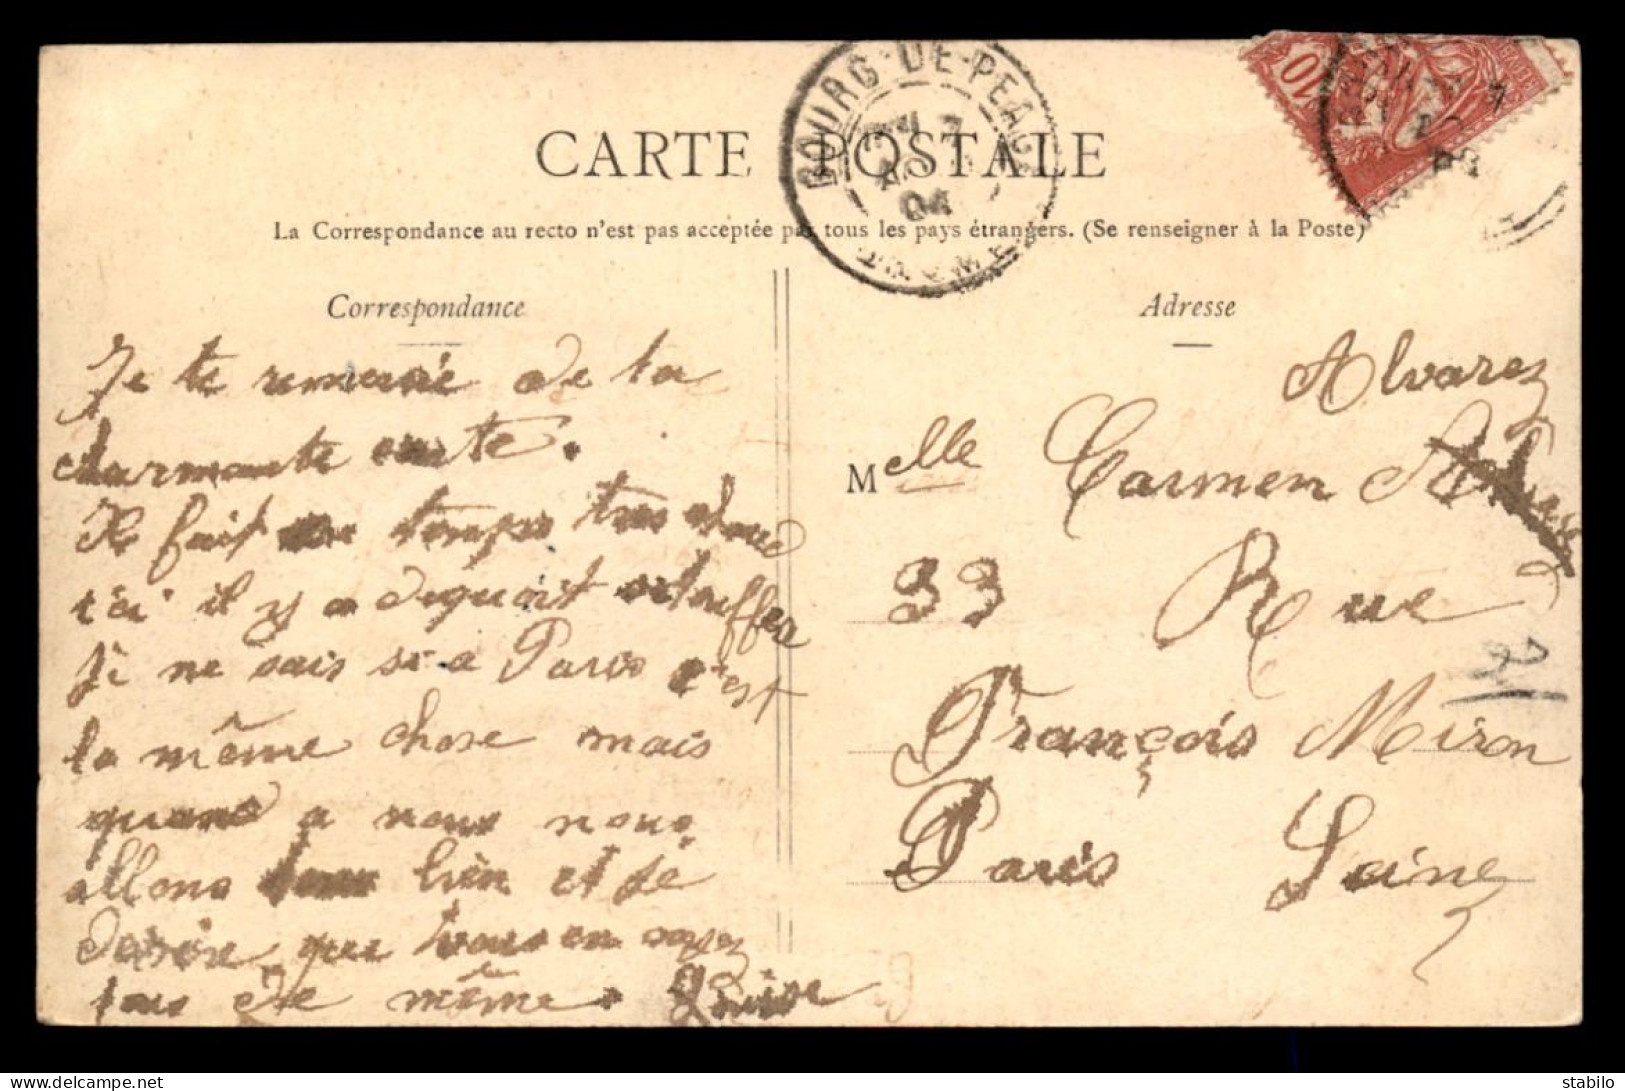 BOURG-DE-PEAGE
AOUT
04
10
CARTE POSTALE
La Correspondance au recto n'est pas acceptée par tous les pays étrangers. (Se renseigner à la Poste)
Correspondance
Je te remercie de la
charmante carte.
Il fait un temps tres chaud
ici il y a dequoit etouffer
Je ne sais si a Paris c'est
la même chose mais
quand a nous nous
allons tous bien et je
desire que vous en soyez
tous de même. Louise
Adresse
Alvarez
Melle Carmen
33 Rue
François Miron
Paris Seine
delcampe.net
stabilo